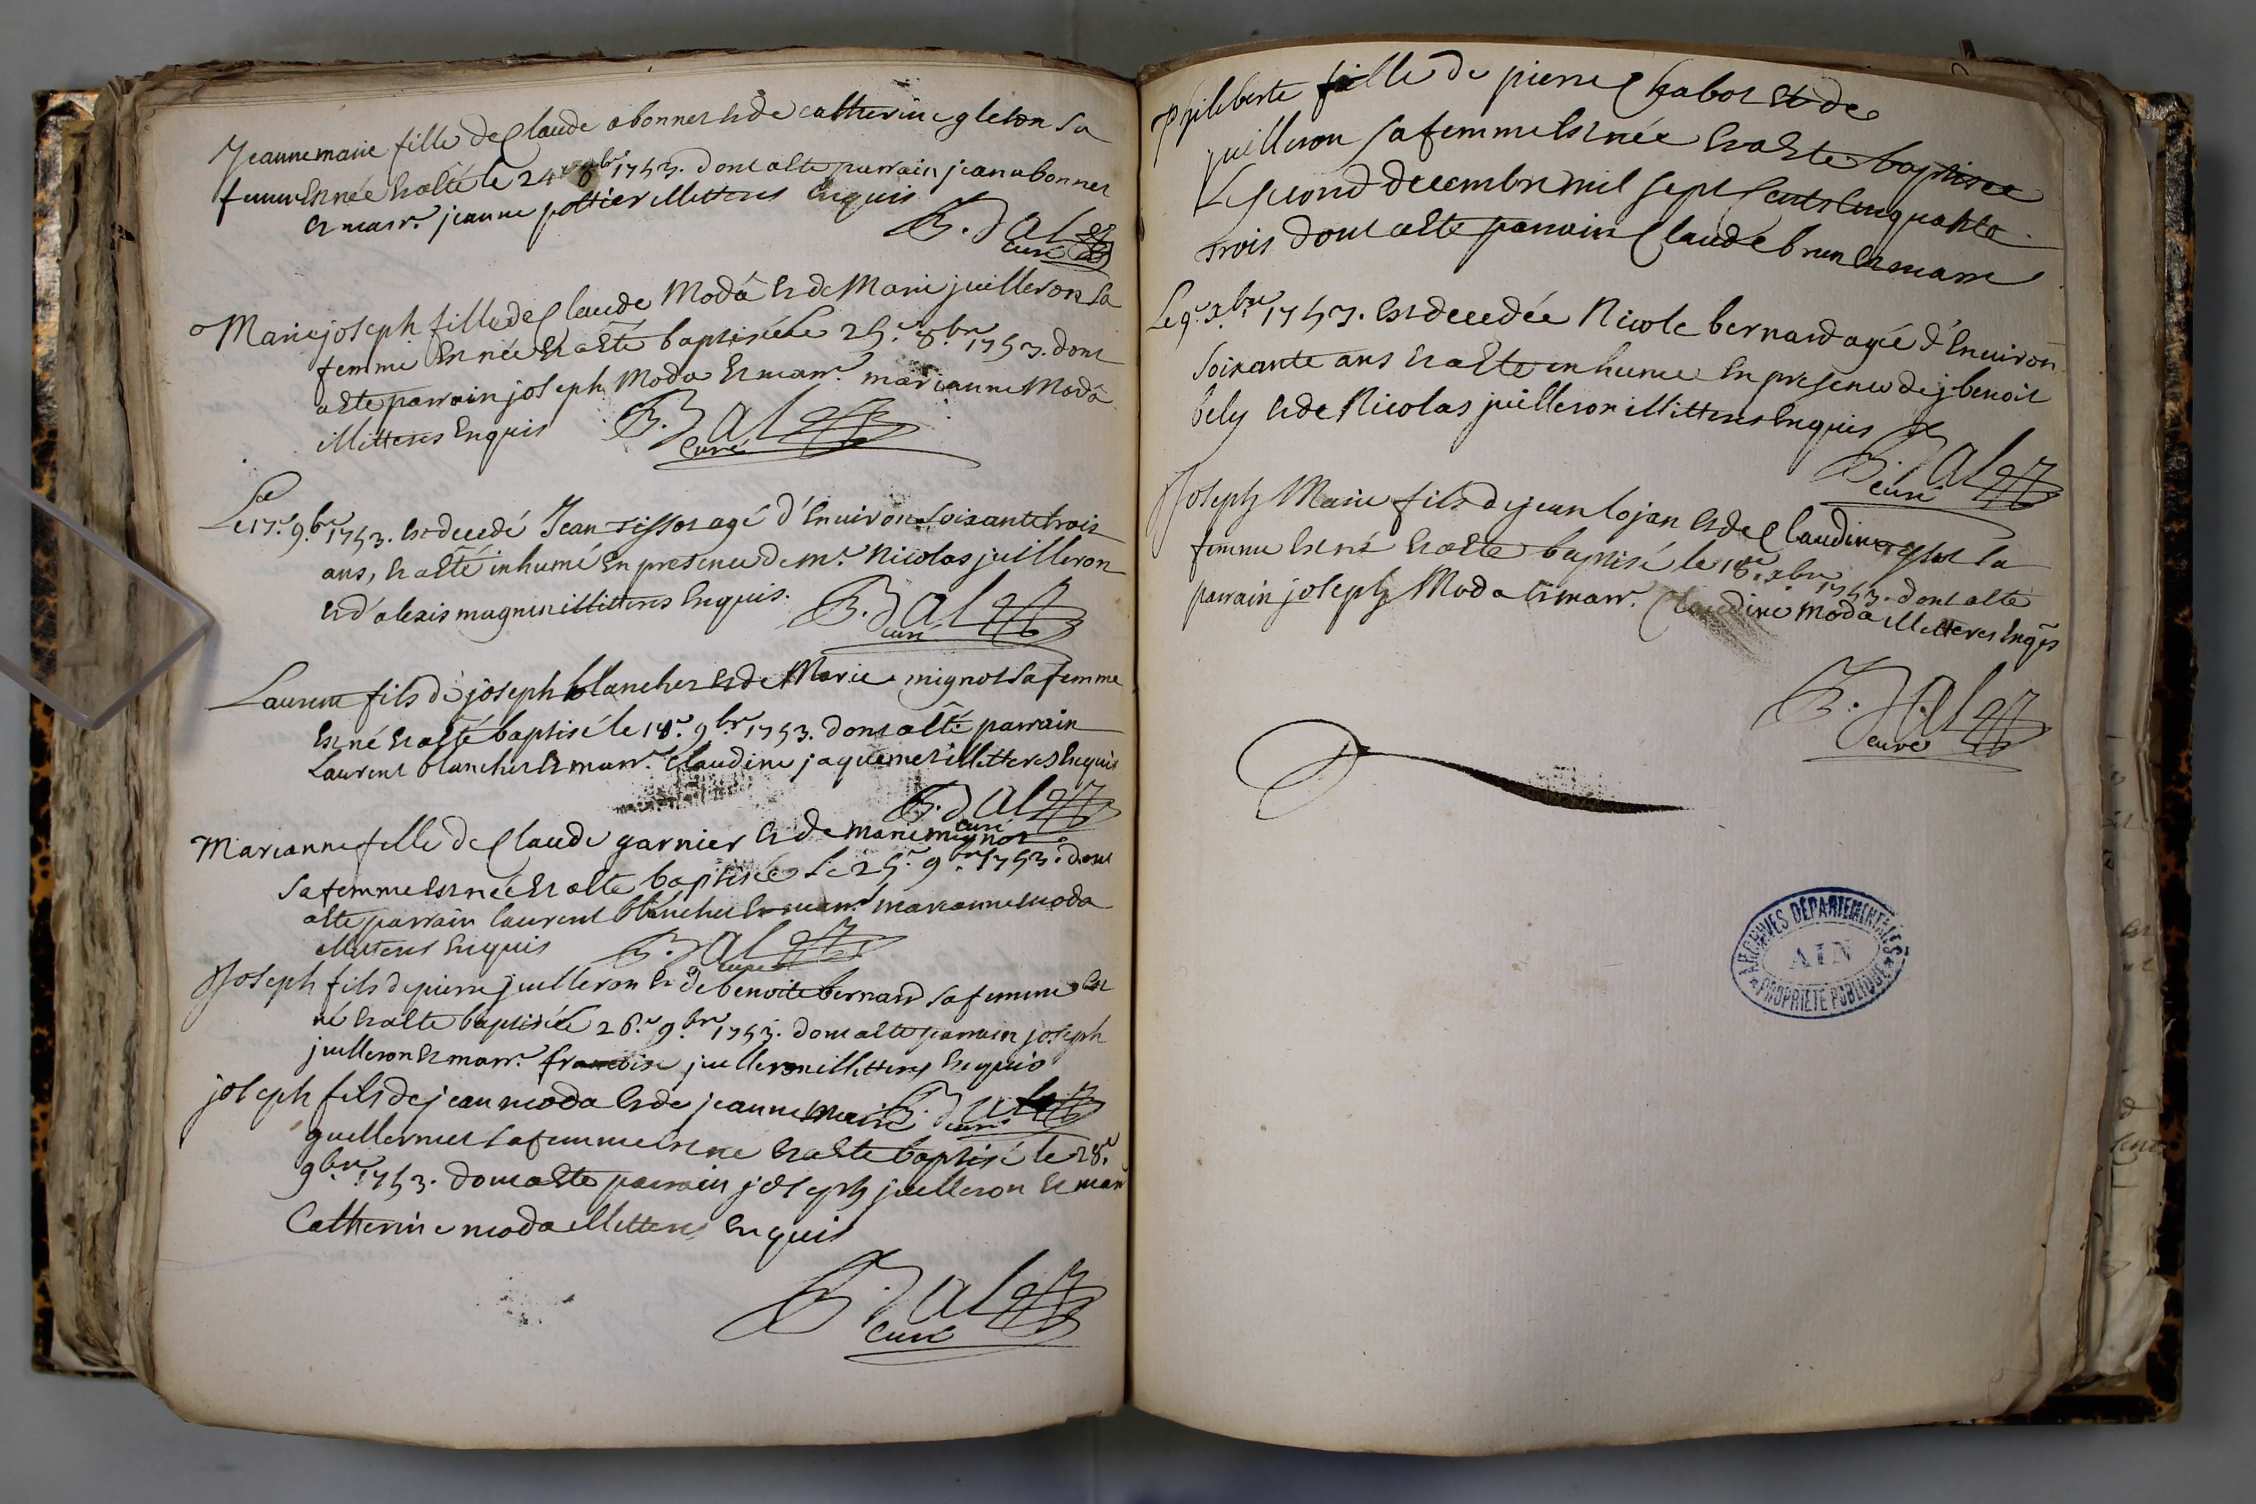 Jeanne marie fille de Claude abonnet et de catherine gleton sa
femme est née et a esté le 24.e 8.bre 1753. dont a esté parrain jean abonnet
et marr.e jeanne pottier illitteres Enquis
B. Dal
curé
Marie joseph fille de Claude Moda et de Marie juilleron sa
femme Est née Et a esté baptisée Le 25.e 8.bre 1753. dont
a esté parrain joseph Moda Et marr.e marianne Moda
illitteres Enquis
B. Dal
Curé
Le 17.e 9.bre 1753. est decedé Jean tissot agé d'Environ soixante trois
ans, Et a esté inhumé En presence de m.r Nicolas juilleron
et d'alexis magnin illitteres Enquis.
B. Dal
curé
Laurent fils de joseph blanchet et de Marie mignot sa femme
Est né Et a esté baptisé le 18.e 9.bre 1753. dont a esté parrain
Laurent blanchet Et marr.e Claudine jaquemet illitteres Enquis
B. Dal
curé
Marianne fille de Claude garnier et de marie mignot
sa femme Est née Et a esté baptisée Le 25.e 9.bre 1753. dont
a esté parrain laurent blanchet Et marr.e marianne moda
illitteres Enquis
B. Dal
curé
Joseph fils de pierre juilleron Et de benoite bernard sa femme Est
né Et a esté baptisé le 26.e 9.bre 1753. dont a esté parrain joseph
juilleron Et marr.e francoise juilleron illitteres Enquis
B. Dal
curé
joseph fils de jean moda Et de jeanne Marie
guillermet sa femme Est né Et a Esté baptisé le 28.e
9.bre 1753. dont a Esté parrain joseph juilleron Et marr
Catherine moda illitteres Enquis
B. Dal
Curé
Philiberte fille de pierre Chabot Et de
juilleron sa femme Est née Et a Esté baptisée
Le second decembre mil sept Cents Cinquante
trois dont a esté parrain Claude brun Et marr
Le 9.e x.bre 1753. est decedée Nicole bernard agée d'Environ
soixante ans Et a Esté inhumé En presence de j benoit
bely et de Nicolas juilleron illitteres Enquis
B. Dal
curé
Joseph Marie fils de jean lojan et de Claudine sa
femme Est né Et a Esté baptisé le 18.e xbre 1753. dont a esté
parrain joseph Moda Et marr.e Claudine moda illitteres Enq̃s
B. Dal
curé
ARCHIVES DÉPARTEMENTALES
AIN
PROPRIÉTÉ PUBLIQUE